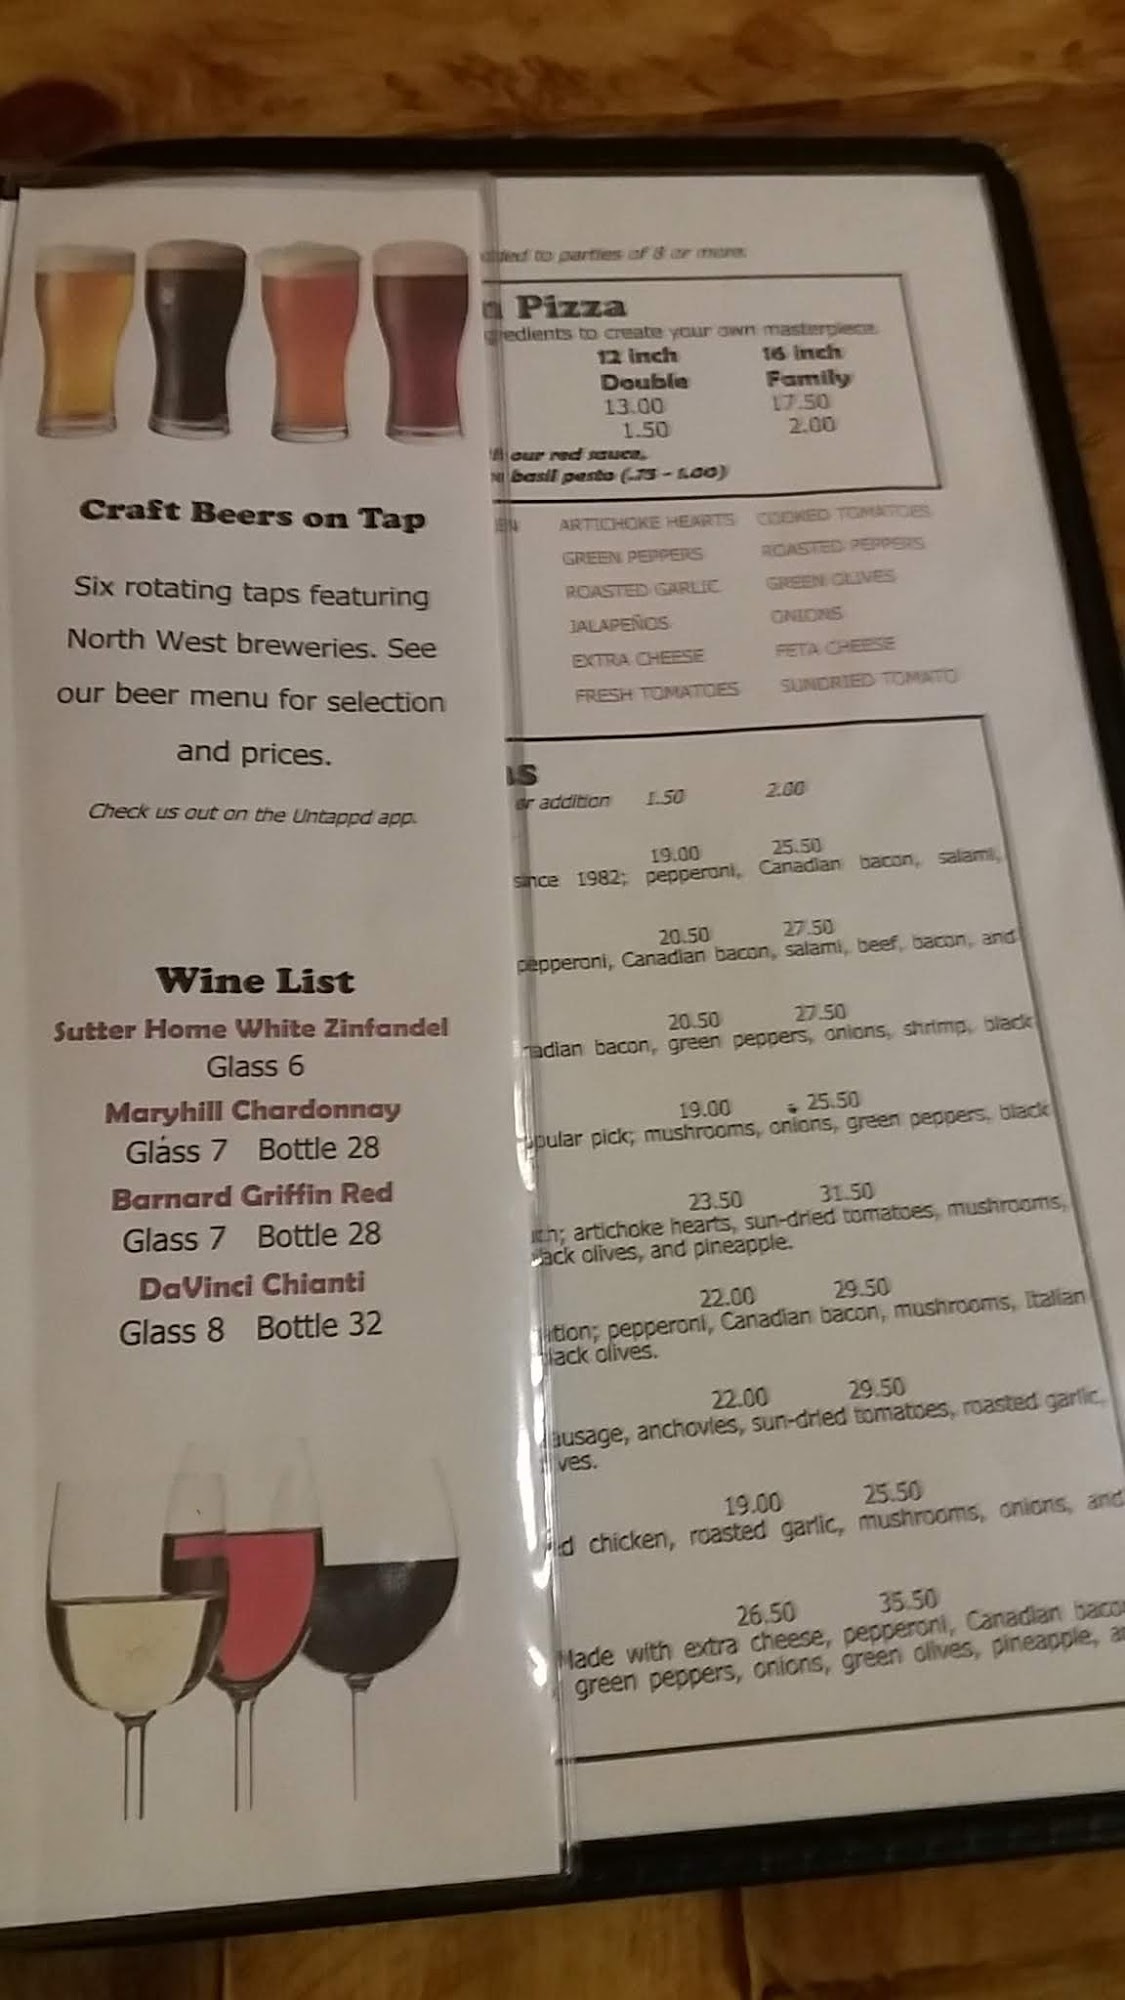 Craft Beers on Tap
Six rotating taps featuring
North West breweries. See
our beer menu for selection
and prices.
Check us out on the Untappd app.
Wine List
Sutter Home White Zinfandel
Glass 6
Maryhill Chardonnay
Glass 7 Bottle 28
Barnard Griffin Red
Glass 7 Bottle 28
DaVinci Chianti
Glass 8 Bottle 32
to parties of 8 or more.
Pizza
to create your own masterpiece.
12 inch 16 inch
Double Family
13.00 17.50
1.50 2.00
our red sauce,
basil pesto (.75 - 1.00)
ARTICHOKE HEARTS COOKED TOMATOES
GREEN PEPPERS ROASTED PEPPERS
ROASTED GARLIC GREEN OLIVES
JALAPEÑOS ONIONS
EXTRA CHEESE FETA CHEESE
FRESH TOMATOES SUNDRIED TOMATO
or addition 1.50 2.00
19.00 25.50
since 1982; pepperoni, Canadian bacon, salami,
20.50 27.50
pepperoni, Canadian bacon, salami, beef, bacon, and
20.50 27.50
adian bacon, green peppers, onions, shrimp, black
19.00 25.50
pular pick; mushrooms, onions, green peppers, black
23.50 31.50
artichoke hearts, sun-dried tomatoes, mushrooms,
ack olives, and pineapple.
22.00 29.50
ition; pepperoni, Canadian bacon, mushrooms, Italian
lack olives.
22.00 29.50
ausage, anchovies, sun-dried tomatoes, roasted garlic,
ves.
19.00 25.50
d chicken, roasted garlic, mushrooms, onions, and
26.50 35.50
Made with extra cheese, pepperoni, Canadian baco
green peppers, onions, green olives, pineapple, a